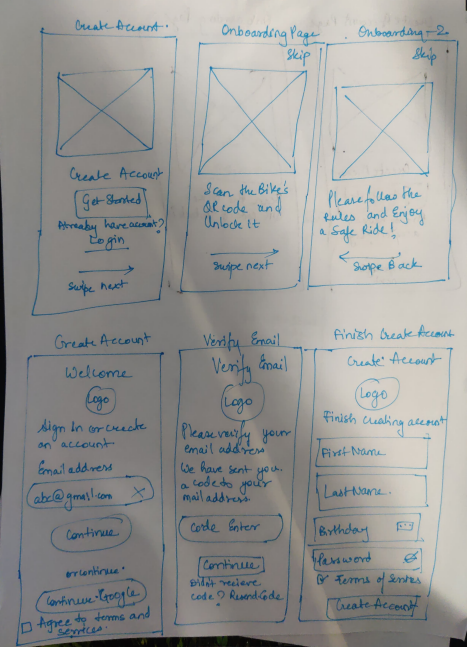 Create Account.
Skip
Create Account
Get Started
Already have account?
Login
Swipe next
Onboarding Page
Skip
Scan the Bike's
QR code and
Unlock It
Swipe next
Onboarding-2
Please follow the
Rules and Enjoy
a Safe Ride!
Swipe Back
Create Account
Welcome
Logo
Sign In or create
an account
Email address
abc@gmail.com
Continue
or continue.
Continue Google
Agree to terms and
services.
Verify Email
Verify Email
Logo
Please verify your
Email address
We have sent you
a code to your
mail address
Code Enter
Continue
Didn't recieve
code? Resend Code
Finish Create Account
Create Account
Logo
Finish creating account
First Name
Last Name.
Birthday
Password
Terms of Services
Create Account